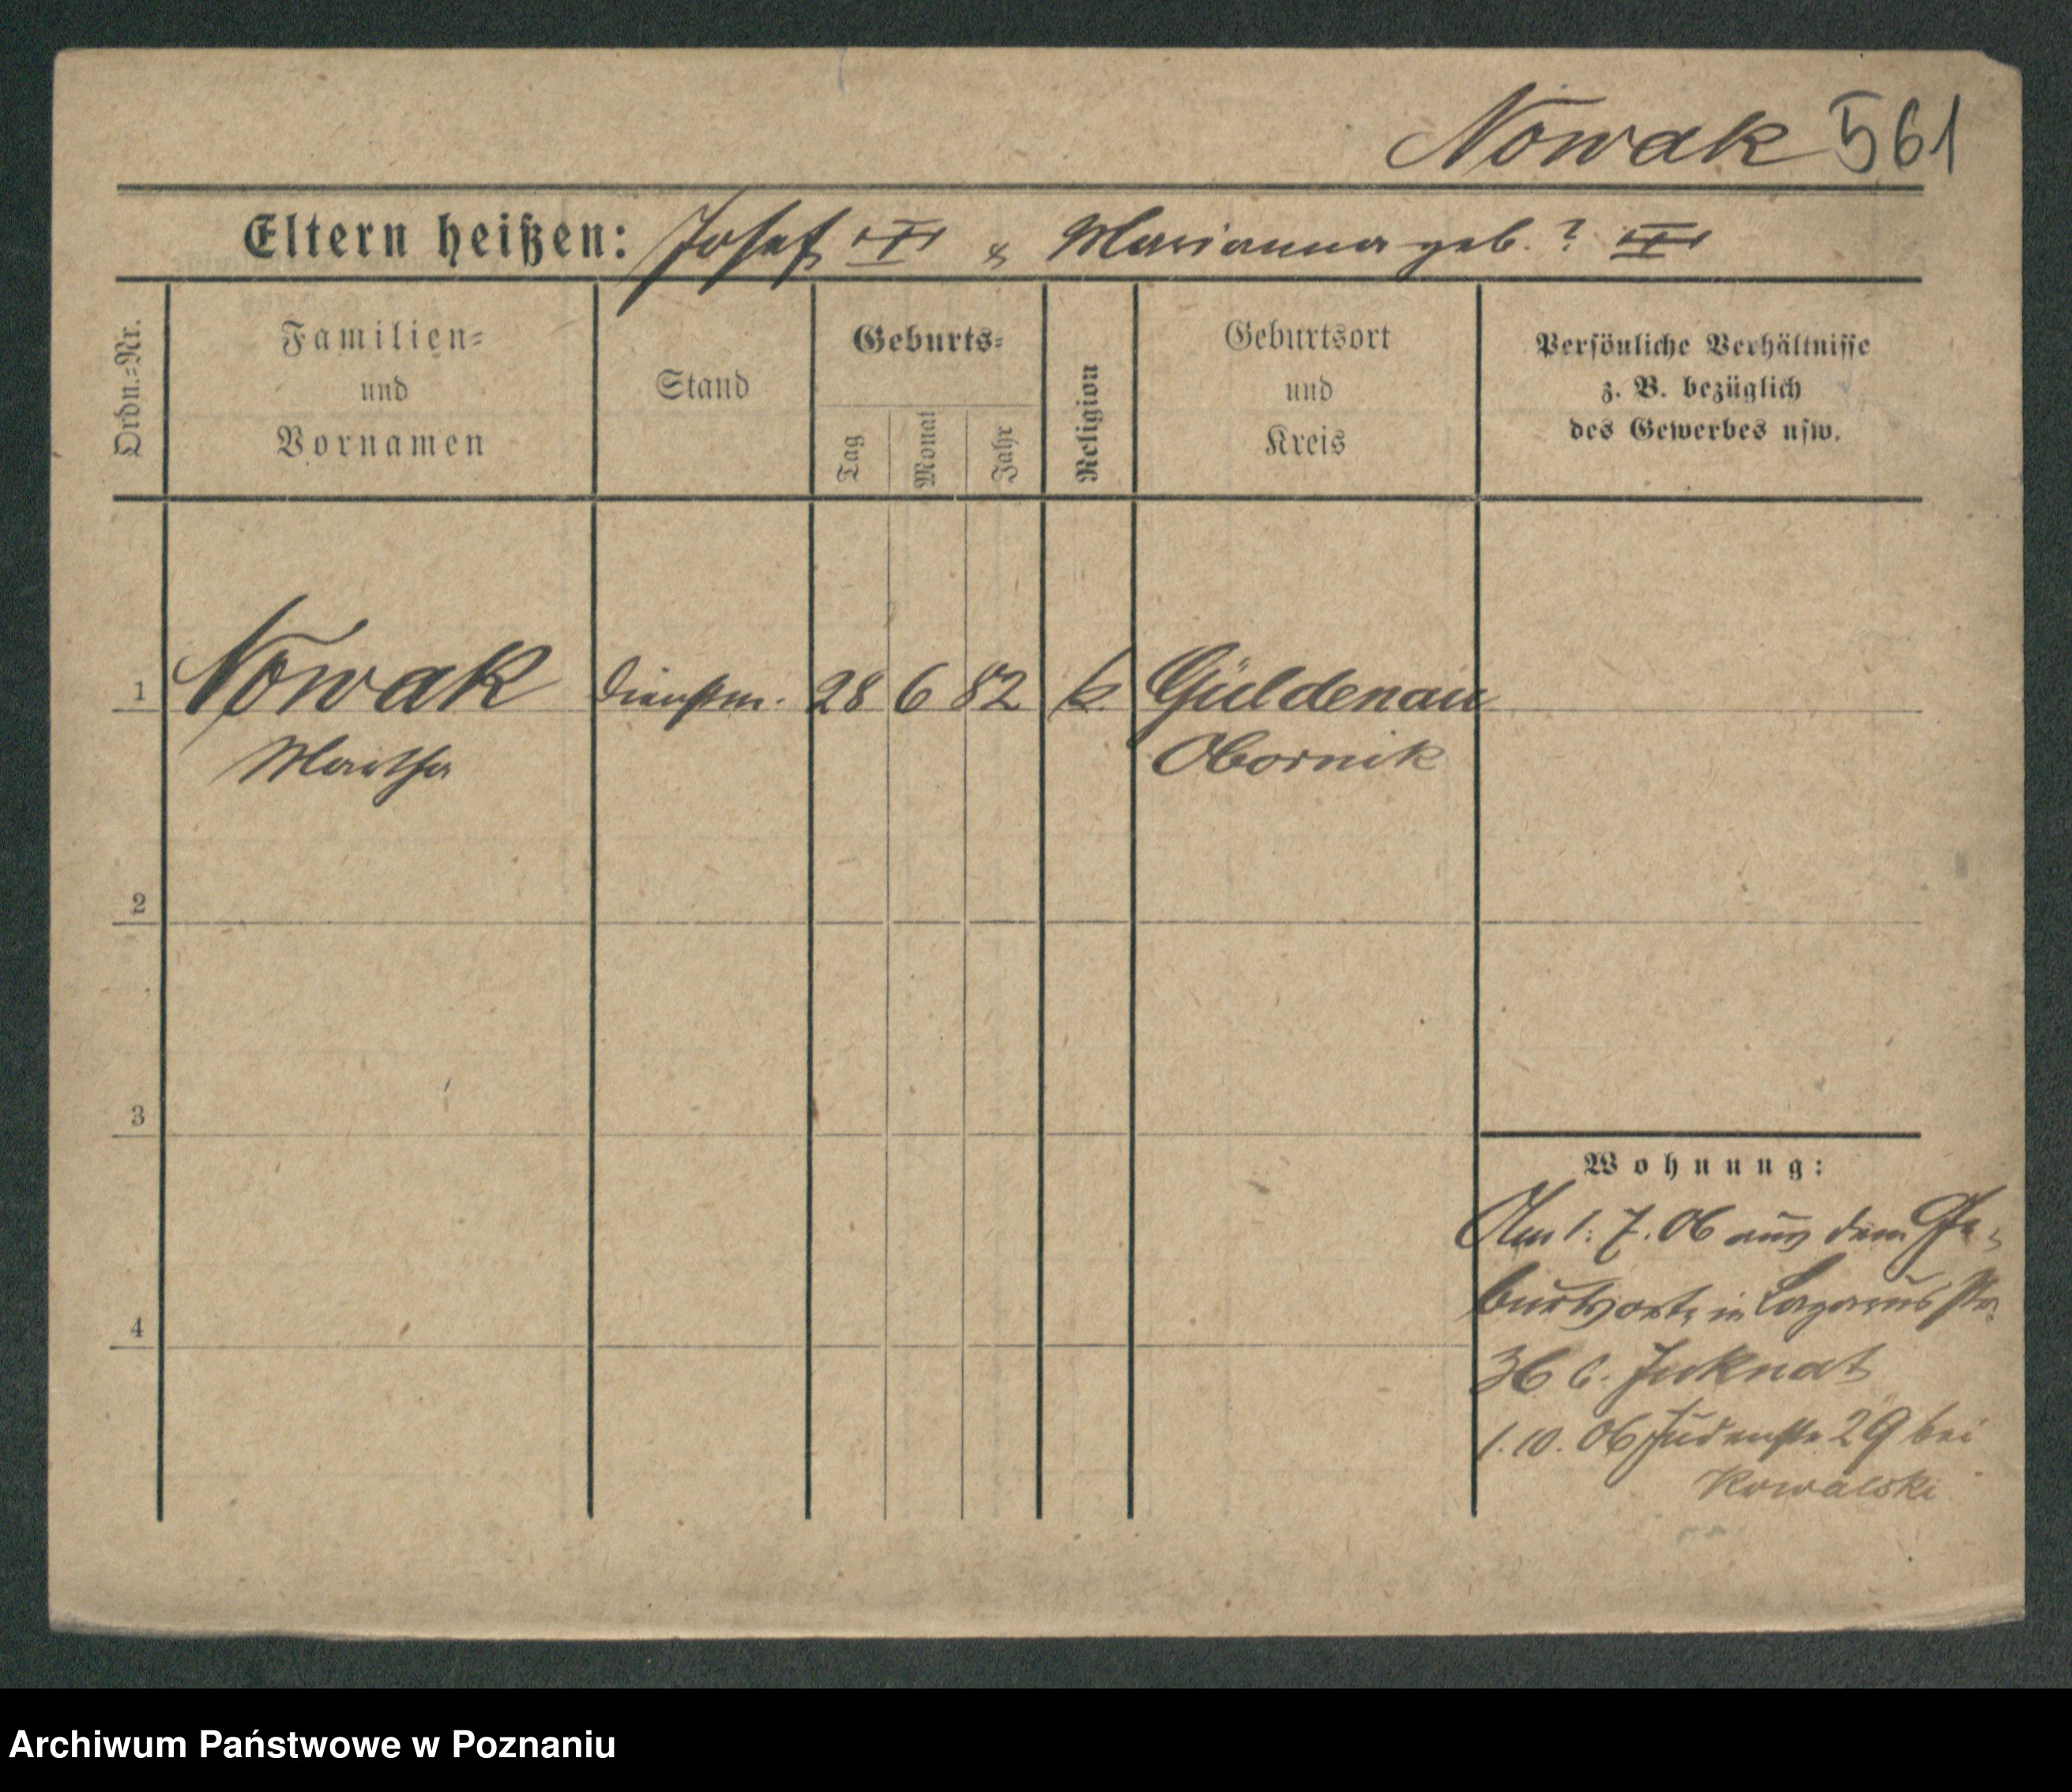 Nowak 561
Eltern heißen: Josef & Marianna geb. ?
Ordn.=Nr.
Familien=
und
Vornamen
Stand
Geburts=
Tag
Monat
Jahr
Religion
Geburtsort
und
Kreis
Persönliche Verhältnisse
z. B. bezüglich
des Gewerbes usw.
1 Nowak Dienstm. 28 6 82 k. Güldenau
Martha Obornik
2
3
4
Wohnung:
Am 1. 7. 06 aus dem Ge-
burtsorte in Lazarusstr.
36 b. Juknat
1. 10. 06 Judenstr 29 bei
Kowalski
Archiwum Państwowe w Poznaniu